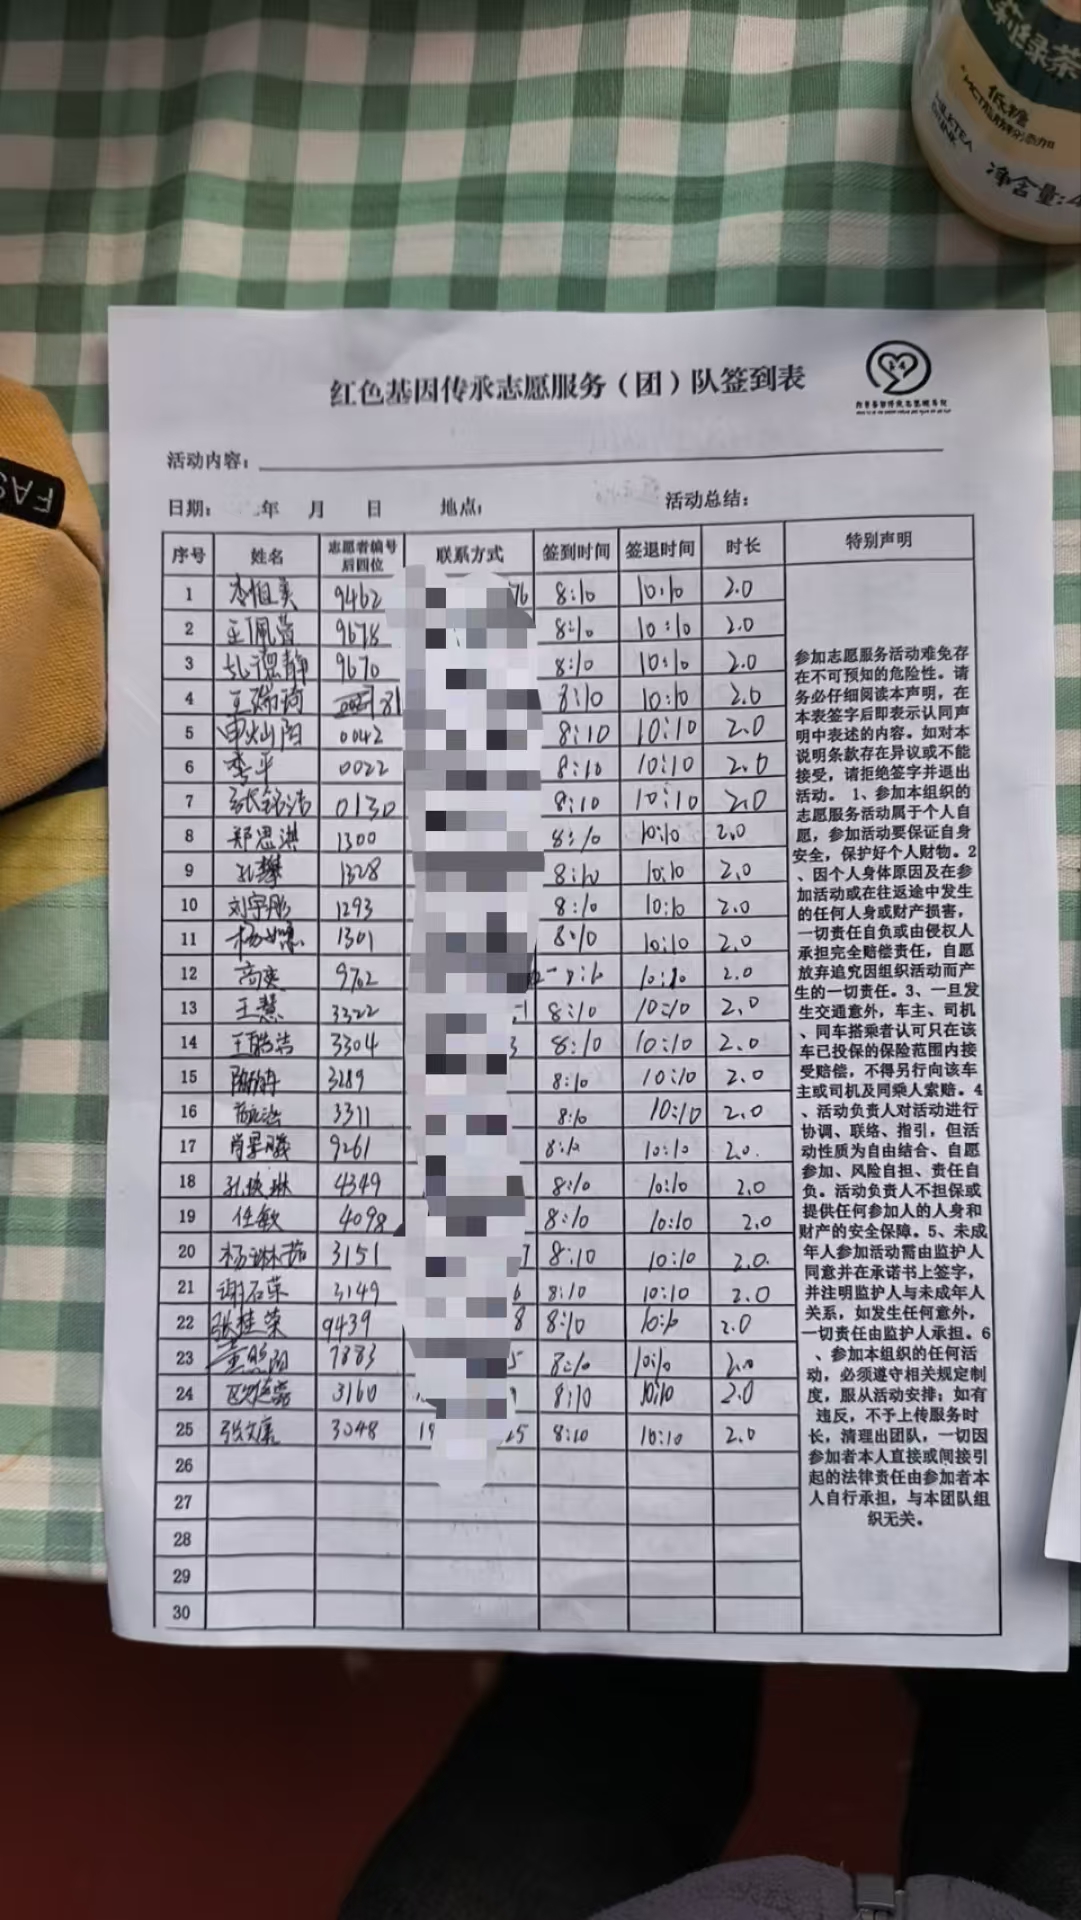 低糖
净含量:
FAS
红色基因传承志愿服务（团）队签到表
活动内容：
日期： 年 月 日 地点： 活动总结：
序号 姓名 志愿者编号后四位 联系方式 签到时间 签退时间 时长 特别声明
1 9462 76 8:10 10:10 2.0
2 王佩茵 9678 8:10 10:10 2.0
3 孔德静 9670 8:10 10:10 2.0
4 王瑞琦 81 8:10 10:10 2.0
5 申灿阳 0042 8:10 10:10 2.0
6 李平 0022 8:10 10:10 2.0
7 张铭洁 0130 8:10 10:10 2.0
8 郑思淇 1300 8:10 10:10 2.0
9 孔攀 1328 8:10 10:10 2.0
10 刘宇彤 1293 8:10 10:10 2.0
11 杨 1301 8:10 10:10 2.0
12 高爽 9762 8:10 10:10 2.0
13 王慧 3322 8:10 10:10 2.0
14 王皓洁 3304 3 8:10 10:10 2.0
15 3289 8:10 10:10 2.0
16 3311 8:10 10:10 2.0
17 9261 8:10 10:10 2.0.
18 4349 8:10 10:10 2.0
19 任敏 4098 8:10 10:10 2.0
20 杨琳茹 3151 7 8:10 10:10 2.0.
21 谢石荣 3149 6 8:10 10:10 2.0
22 张桂荣 9439 8 8:10 10:10 2.0
23 董熙阳 7883 5 8:10 10:10 2.0
24 3160 8:10 10:10 2.0
25 张文康 3048 19 25 8:10 10:10 2.0
26
27
28
29
30
参加志愿服务活动难免存
在不可预知的危险性。请
务必仔细阅读本声明，在
本表签字后即表示认同声
明中表述的内容。如对本
说明条款存在异议或不能
接受，请拒绝签字并退出
活动。 1、参加本组织的
志愿服务活动属于个人自
愿，参加活动要保证自身
安全，保护好个人财物。2
、因个人身体原因及在参
加活动或在往返途中发生
的任何人身或财产损害，
一切责任自负或由侵权人
承担完全赔偿责任，自愿
放弃追究因组织活动而产
生的一切责任。3、一旦发
生交通意外，车主、司机
、同车搭乘者认可只在该
车已投保的保险范围内接
受赔偿，不得另行向该车
主或司机及同乘人索赔。4
、活动负责人对活动进行
协调、联络、指引，但活
动性质为自由结合、自愿
参加、风险自担、责任自
负。活动负责人不担保或
提供任何参加人的人身和
财产的安全保障。5、未成
年人参加活动需由监护人
同意并在承诺书上签字，
并注明监护人与未成年人
关系，如发生任何意外，
一切责任由监护人承担。6
、参加本组织的任何活
动，必须遵守相关规定制
度，服从活动安排；如有
违反，不予上传服务时
长，清理出团队，一切因
参加者本人直接或间接引
起的法律责任由参加者本
人自行承担，与本团队组
织无关。